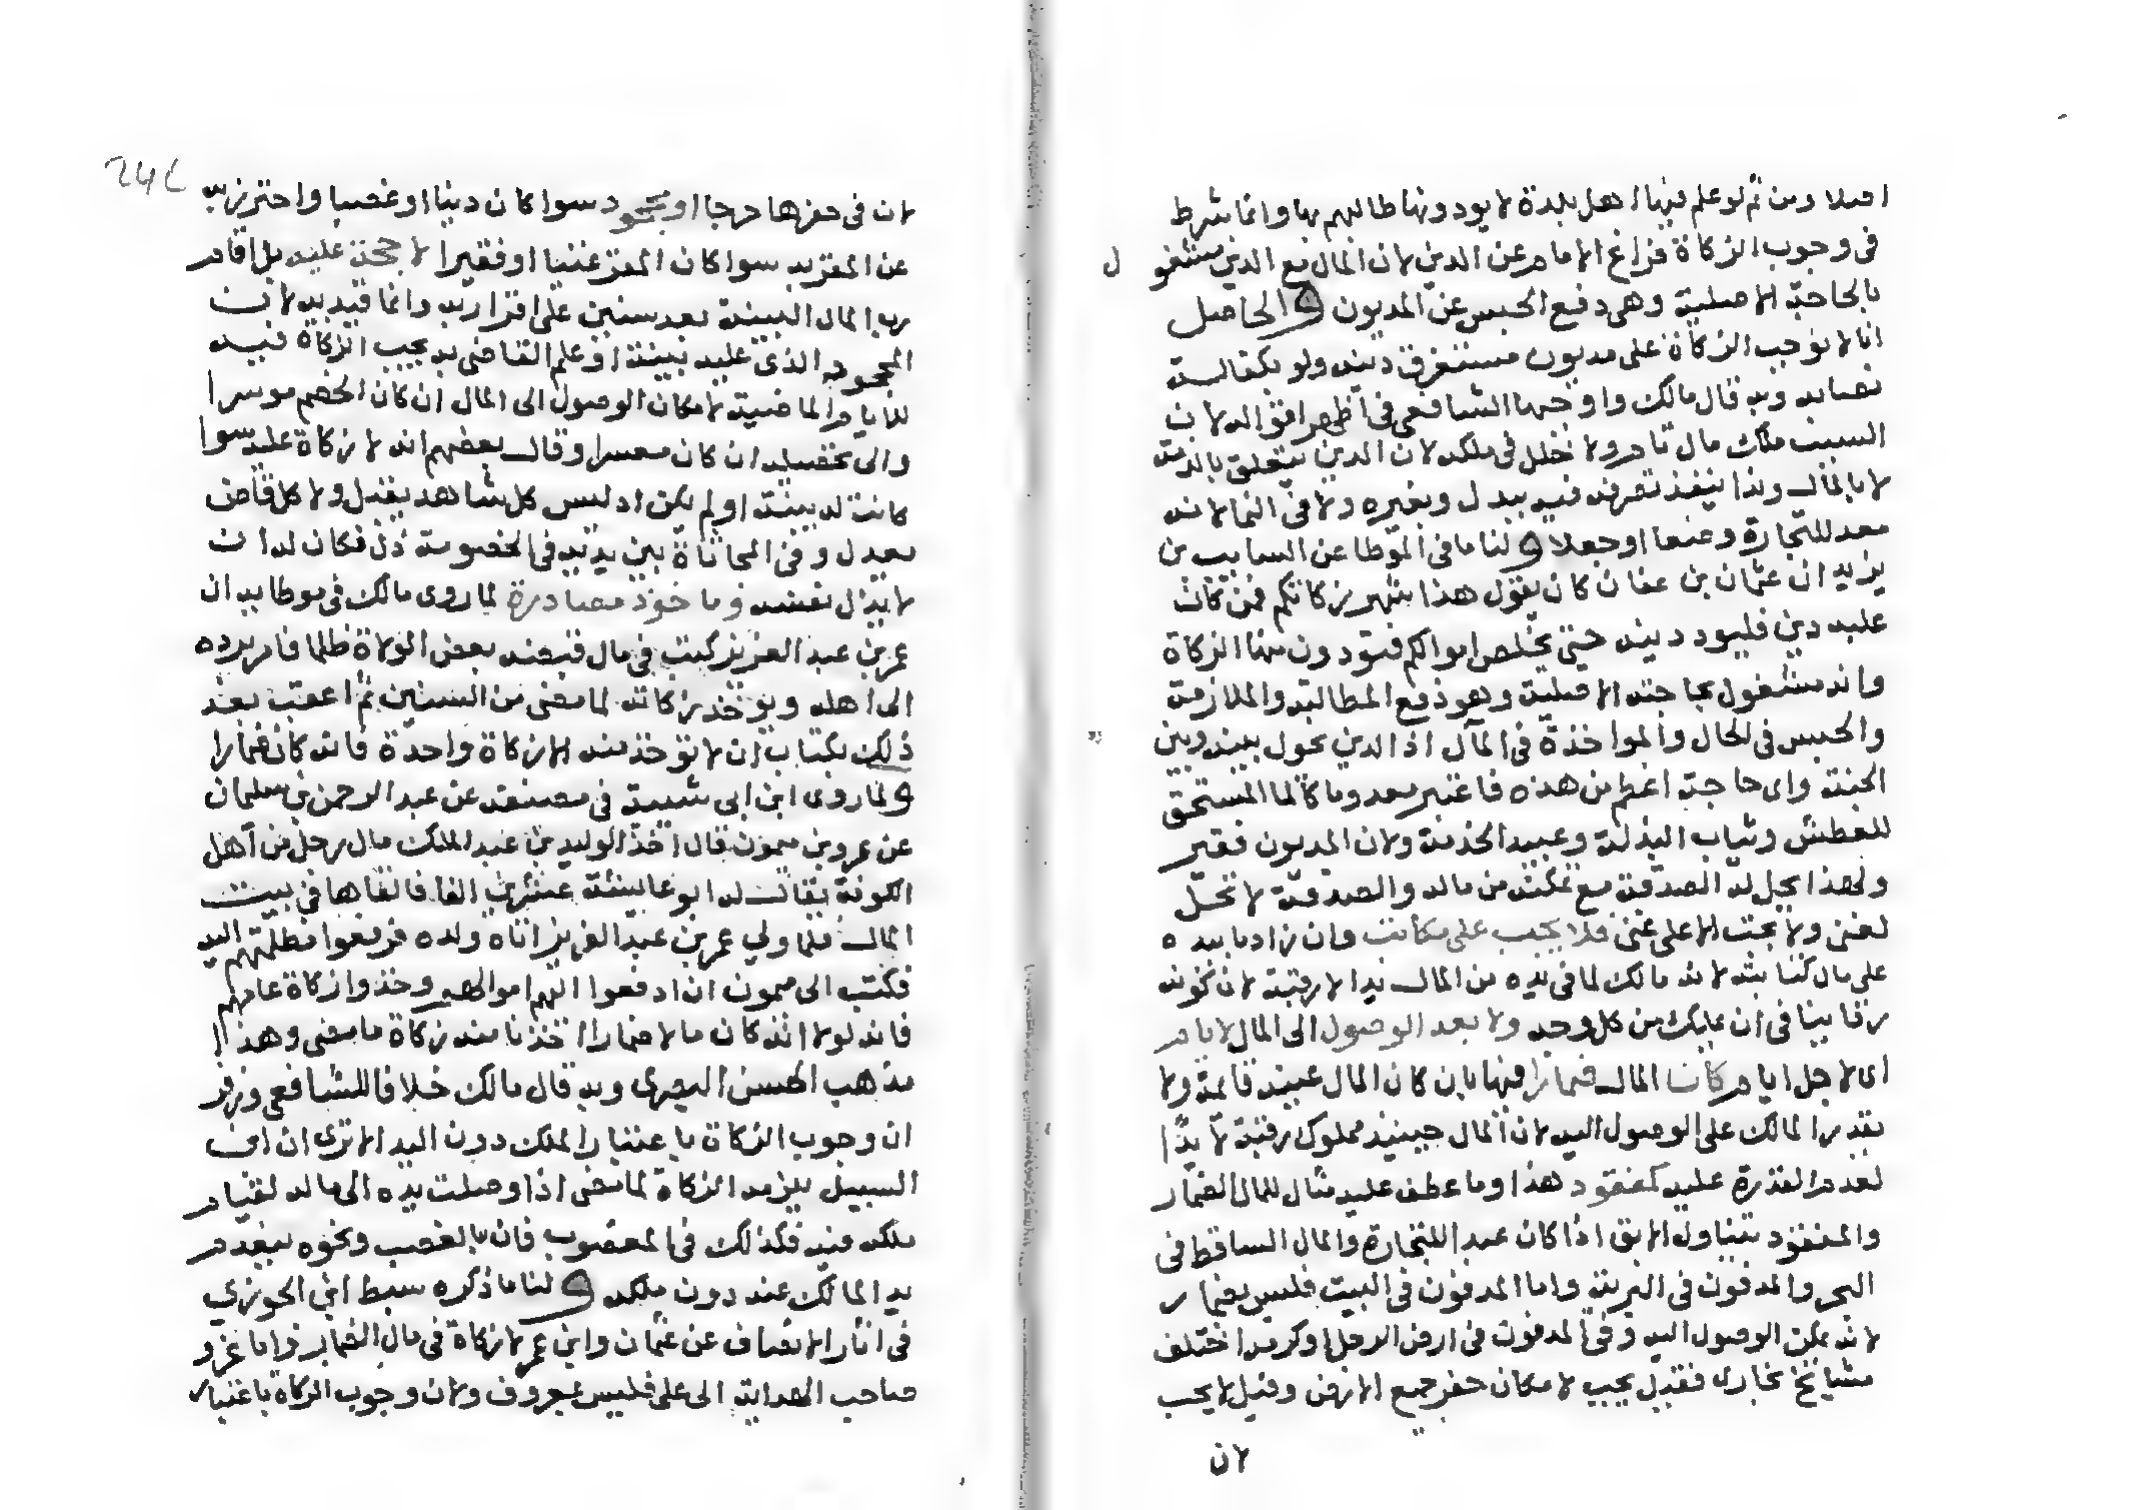 اصلا ومن ثم لو علم فيها اهل بلدة لا يودونها طالبهم بها وانما شرط
في وجوب الزكاة فراغ الامام عن الدين لان المال مع الدين مشغو ل
بالحاجة الاصلية وهي دفع الحبس عن المديون والحاصل
انا لا نوجب الزكاة على مديون مستغرق دينه ولو بكفالة
نصابه وبه قال مالك واوجبها الشافعي في اظهر اقواله لان
السبب ملك مال تام ولا خلل في ملكه لان الدين يتعلق بالذمة
لا بالمال ولذا ينفذ تصرفه فيه ببدل وبغيره ولا في النما لانه
معد للتجارة وضعا او جعلا ولنا ما في الموطا عن السايب بن
يزيد ان عثمان بن عفان كان يقول هذا شهر زكاتكم فمن كان
عليه دين فليود دينه حتى تخلص اموالكم فتودون منها الزكاة
وانه مشغول بحاجته الاصلية وهو دفع المطالبة والملازمة
والحبس في الحال والمواخذة في المآل اذ الدين يحول بينه وبين
الجنة واي حاجة اعظم من هذه فاعتبر معدوما كالما المستحق
للعطش وثياب البذلة وعبيد الخدمة ولان المديون فقير
ولهذا يحل له الصدقة مع تمكنه من ماله والصدقة لا تحل
لغني ولا تجب الا على غني فلا يجب على مكاتب وان زاد ما بيده
على مال كتابته لانه مالك لما في يده من المال يدا لا رقبة لان كونه
رقا ينافي ان يملك من كل وجه ولا بعد الوصول الى المال لايام
اي لاجل ايام كان المال ضمارا فيها بان كان المال عينه قائمة ولا
يقدر المالك على الوصول اليه لان المال حينيذ مملوك رقبة لا يدا
لعدم القدرة عليه كمفقود هذا وما عطف عليه مثال للمال الضمار
والمفقود يتناول الابق اذا كان عبدا للتجارة والمال الساقط في
البحر والمدفون في البرية واما المدفون في البيت فليس بضمار
لانه يمكن الوصول اليه وفي المدفون في ارض الرجل او كرمه اختلف
مشايخ بخارى فقيل يجب لامكان حفر جميع الارض وقيل لا يجب
لان
لان في حفرها حرجا او مجحود سوا كان دينا او غصبا واحترز به
عن المقر به سوا كان المقر غنيا او فقيرا لا حجة عليه بل اقام
رب المال البينة بعد سنين على اقراره به وانما قيد به لان
المجحود الذي عليه بينة او علم القاضي به يجب الزكاة فيه
للايام الماضية لامكان الوصول الى المال ان كان الخصم موسرا
والى تحصيله ان كان معسرا وقال بعضهم انه لا زكاة عليه سوا
كانت له بينة او لم يكن اذ ليس كل شاهد يقبل ولا كل قاض
يعدل وفي المحاثاة بين يديه في الخصومة ذل فكان له ان
لا يذل نفسه وما خوذ مصادرة لما روى مالك في موطايه ان
عمر بن عبد العزيز كتب في مال قبضه بعض الولاة ظلما فامر برده
الى اهله وتوخذ زكاته لما مضى من السنين ثم اعقب بعد
ذلك بكتاب ان لا توخذ منه الا زكاة واحدة فانه كان ضمارا
ولما روى ابن ابي شيبة في مصنفه عن عبد الرحمن بن سليمان
عن عمرو بن ميمون قال اخذ الوليد بن عبد الملك مال رجل من اهل
الكوفة يقال له ابو عايشة عشرين الفا فالقاها في بيت
المال فلما ولي عمر بن عبد العزيز اتاه ولده فرفعوا مظلمتهم اليه
فكتب الى ميمون ان ادفعوا اليهم اموالهم وخذوا زكاة عامهم
فانه لولا انه كان مالا ضمارا اخذنا منه زكاة ما مضى وهذا
مذهب الحسن البصري وبه قال مالك خلافا للشافعي وزفر
ان وجوب الزكاة باعتبار الملك دون اليد الا ترى ان ابن
السبيل يلزمه الزكاة لما مضى اذا وصلت يده الى ماله لقيام
ملكه فيه فكذلك في المغصوب فان بالغصب ونحوه ينعدم
يد المالك عنه دون ملكه ولنا ما ذكره سبط ابن الجوزي
في اثار الانصاف عن عثمان وابن عمر لا زكاة في مال الضمار واما عزو
صاحب الهداية الى علي فليس بمعروف ولان وجوب الزكاة باعتبار